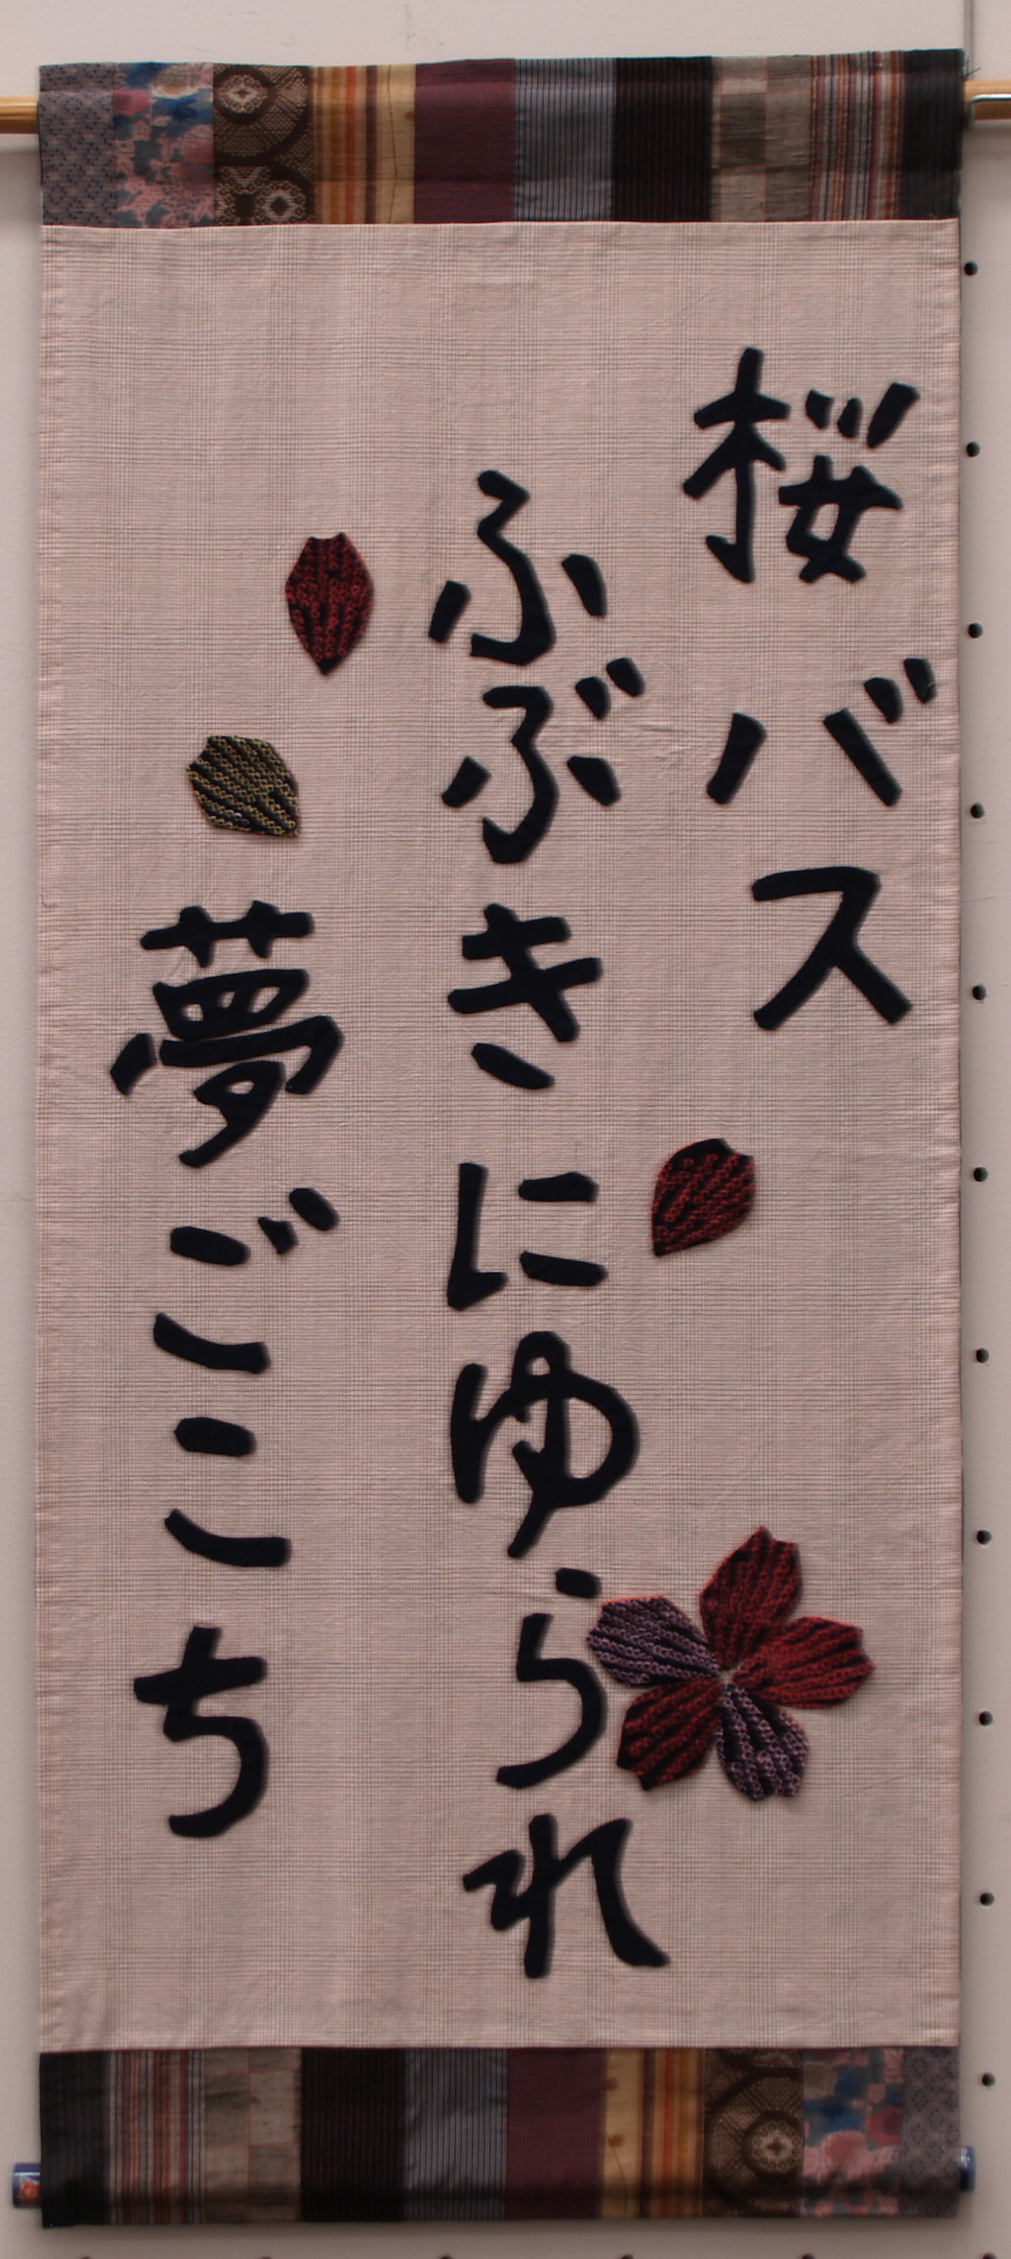 桜バス
ふぶきにゆられ
夢ごこち